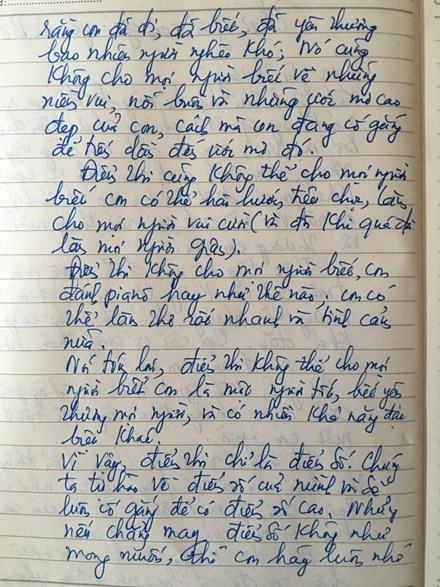 rằng con đã đi, đã biết, đã yêu thương
bao nhiêu người nghèo khó; Nó cũng
không cho mọi người biết về những
niềm vui, nỗi buồn và những ước mơ cao
đẹp của con, cách mà con đang cố gắng
để tiến dần đến ước mơ đó.
Điểm thi cũng không thể cho mọi người
biết con có thể hài hước, tếu chứ, làm
cho mọi người vui cười (và đôi khi quá đà
làm mọi người giận).
Điểm thi không cho mọi người biết, con
đánh pianô hay như thế nào. con có
thể làm thơ rất nhanh và tình cảm
nữa.
Nói tóm lại, điểm thi không thể cho mọi
người biết con là một người tốt, biết yêu
thương mọi người, và có nhiều khả năng đặc
biệt khác.
Vì vậy, điểm thi chỉ là điểm số. Chúng
ta tự hào về điểm số của mình và sẽ
luôn cố gắng để có điểm số cao. Nhưng
nếu chẳng may điểm số không như
mong muốn, thì con hãy luôn nhớ